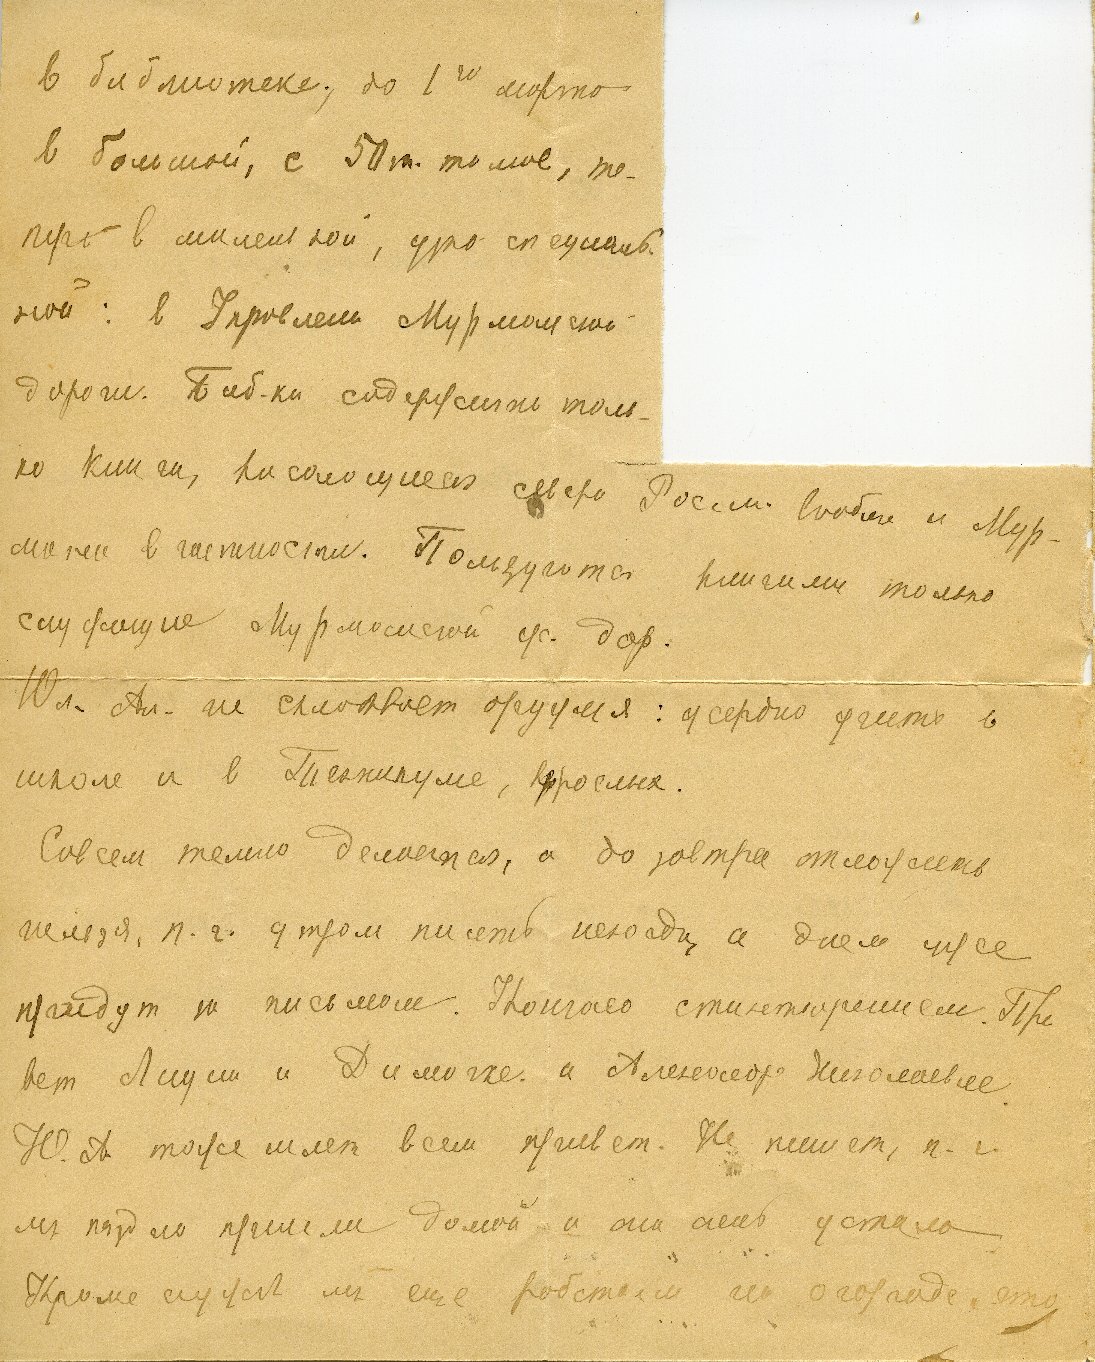 в библиотеке; до 1го марта
в большой, с 50 т. томов, те-
перь в маленькой, узко специаль-
ной: в Управлени Мурманской
дороги. Биб-ка содержить толь-
ко книги, касающиеся севера России вообще и Мур-
мана в частности. Пользуются книгами только
служащие Мурманской ж. дор.
Юл. Ал. не складывает оружия: усердно учить в
школе и в Техникуме, взрослых.
Совсем темно делается, а до завтра отложить
нельзя, п. ч. утром писать некогда, а днем уже
придут за письмом. Кончаю стихотворением. При
вет Люши и Димочке и Александр Николаевне.
Ю. А тоже шлет всем привет. Не пишет, п. ч.
мы поздно пришли домой и она очень устала
Кроме службы мы еще работаем на огороде, это